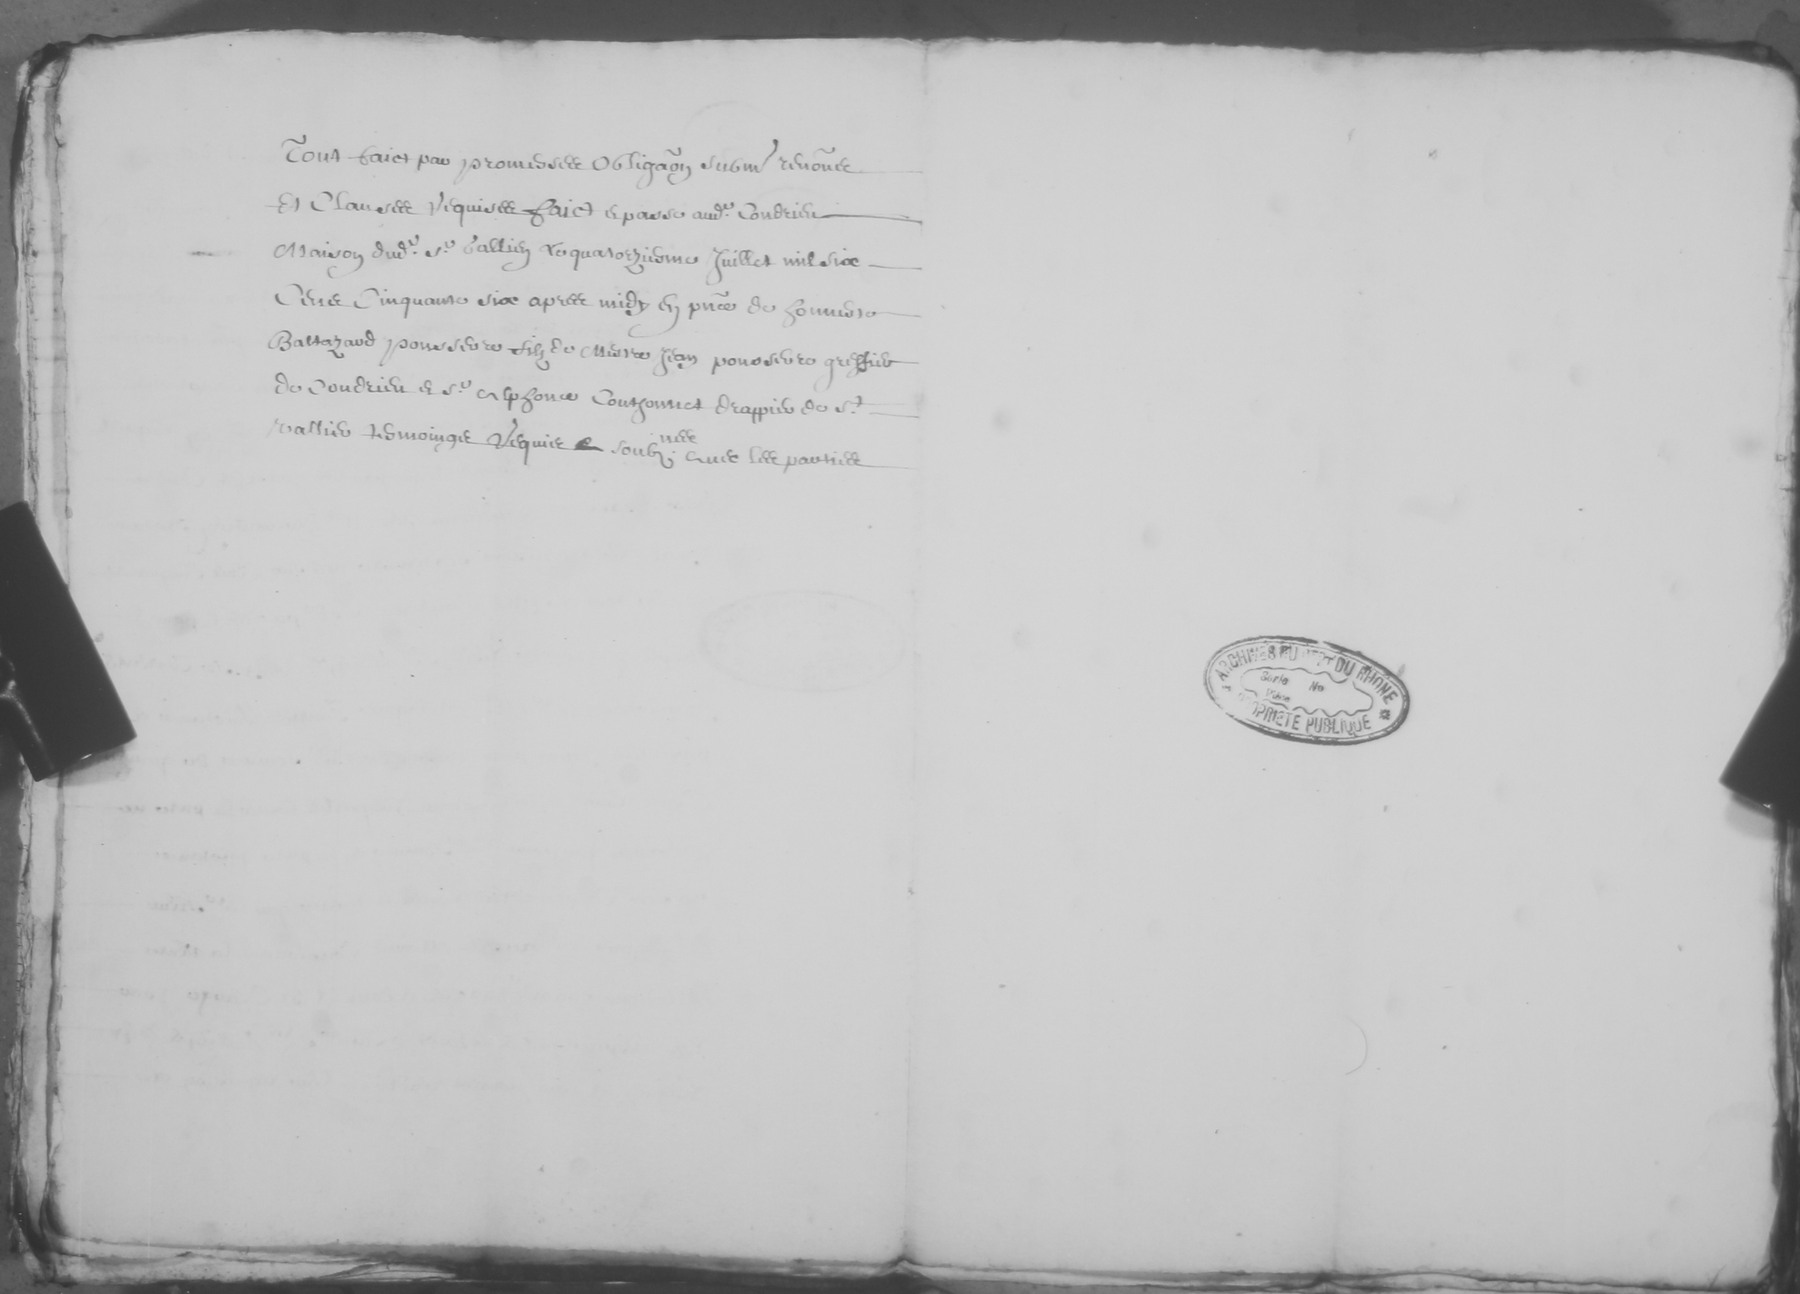 Tout faict par promesses obligaõn subm̃ renõnces
Et Clauses requises faict e passe audt. Condrieu
Maison dudt. sr. Vallin le quatorziesme Juillet mil six
Cens Cinquante six apres midy en pñce de honneste
Baltazard poursevre filz de Mestre Jean poursevre greffier
de Condrieu e sr. Alphonce Couthonnet drappier de st.
vallier tesmoings requis e soubz.nes avec les parties
ARCHIVES DU DEPT DU RHÔNE
Serie No
Pièce
PROPRIETE PUBLIQUE